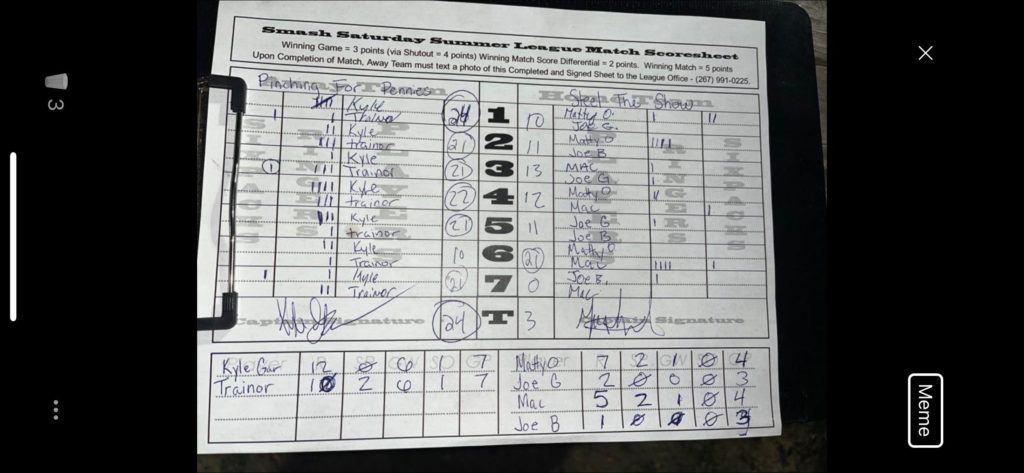 Smash Saturday Summer League Match Scoresheet
Winning Game = 3 points (via Shutout = 4 points) Winning Match Score Differential = 2 points. Winning Match = 5 points
Upon Completion of Match, Away Team must text a photo of this Completed and Signed Sheet to the League Office - (267) 991-0225.
Pinching For Pennies Steel The Show
Kyle 24 1 10 Matty O.
Trainor Joe G.
Kyle 21 2 11 Matty O
trainor Joe B
Kyle 21 3 13 MAC
Trainor Joe G
Kyle 22 4 12 Matty O
trainor Mac
Kyle 21 5 11 Joe G
trainor Joe B
Kyle 10 6 Matty O
Trainor Mac
Kyle 21 7 0 Joe B.
Trainor Mac
Captain Signature 24 T 3 Signature
Kyle Gar 12 0 6 1 7 Matty O 7 2 1 0 4
Trainor 10 2 6 1 7 Joe G 2 0 0 0 3
Mac 5 2 1 0 4
Joe B 1 0 0 0 3
3
Meme